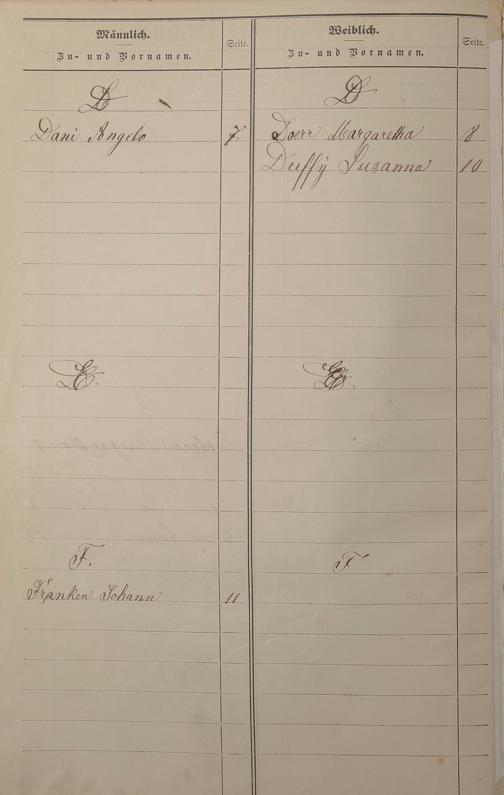 Männlich.
Zu- und Vornamen.
Seite.
D
Dani Angelo 7
E.
F.
Franken Johann 11
Weiblich.
Zu- und Vornamen.
Seite.
D
Doerr Margaretha 8
Duffÿ Susanna 10
E.
F